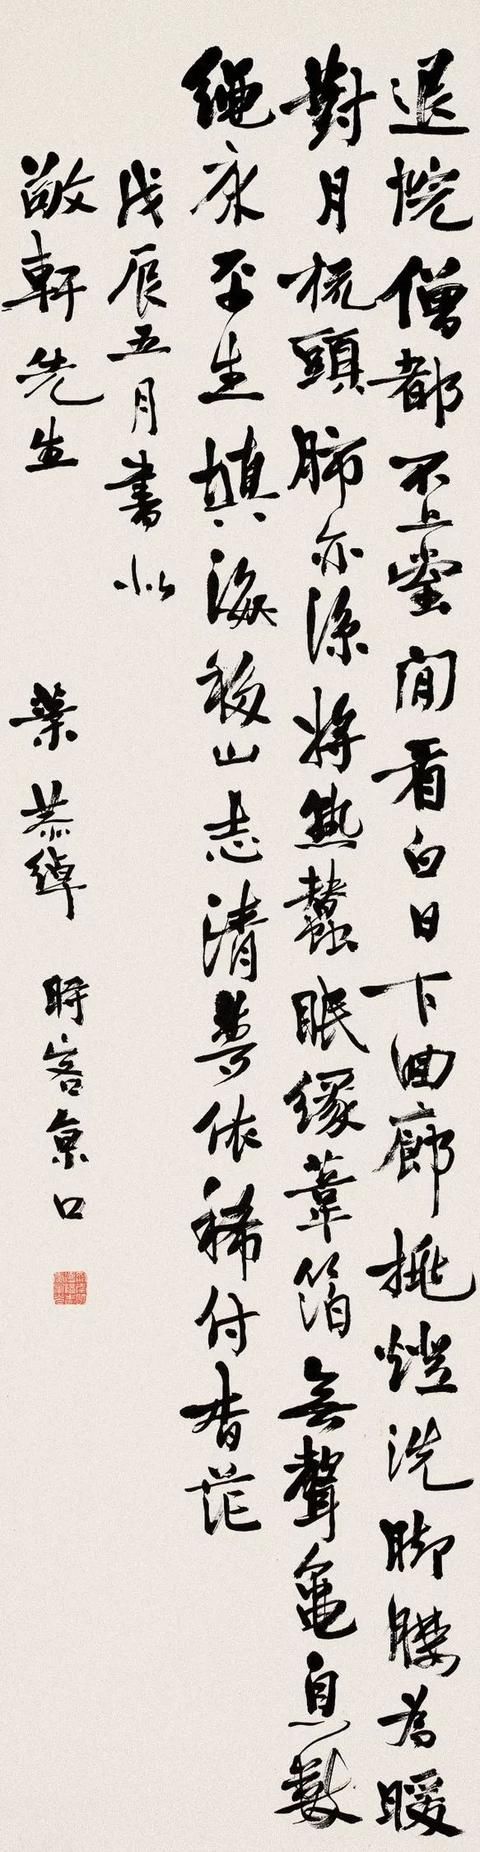 退院僧都不上堂閒看白日下回廊挑燈洗脚腰為暖
對月梳頭肺亦涼將熱蠶眠緣葦箔無聲龜息數
繩床平生填海移山志清夢依稀付杳茫
戊辰五月書似
敬軒先生
葉恭綽時客泉口